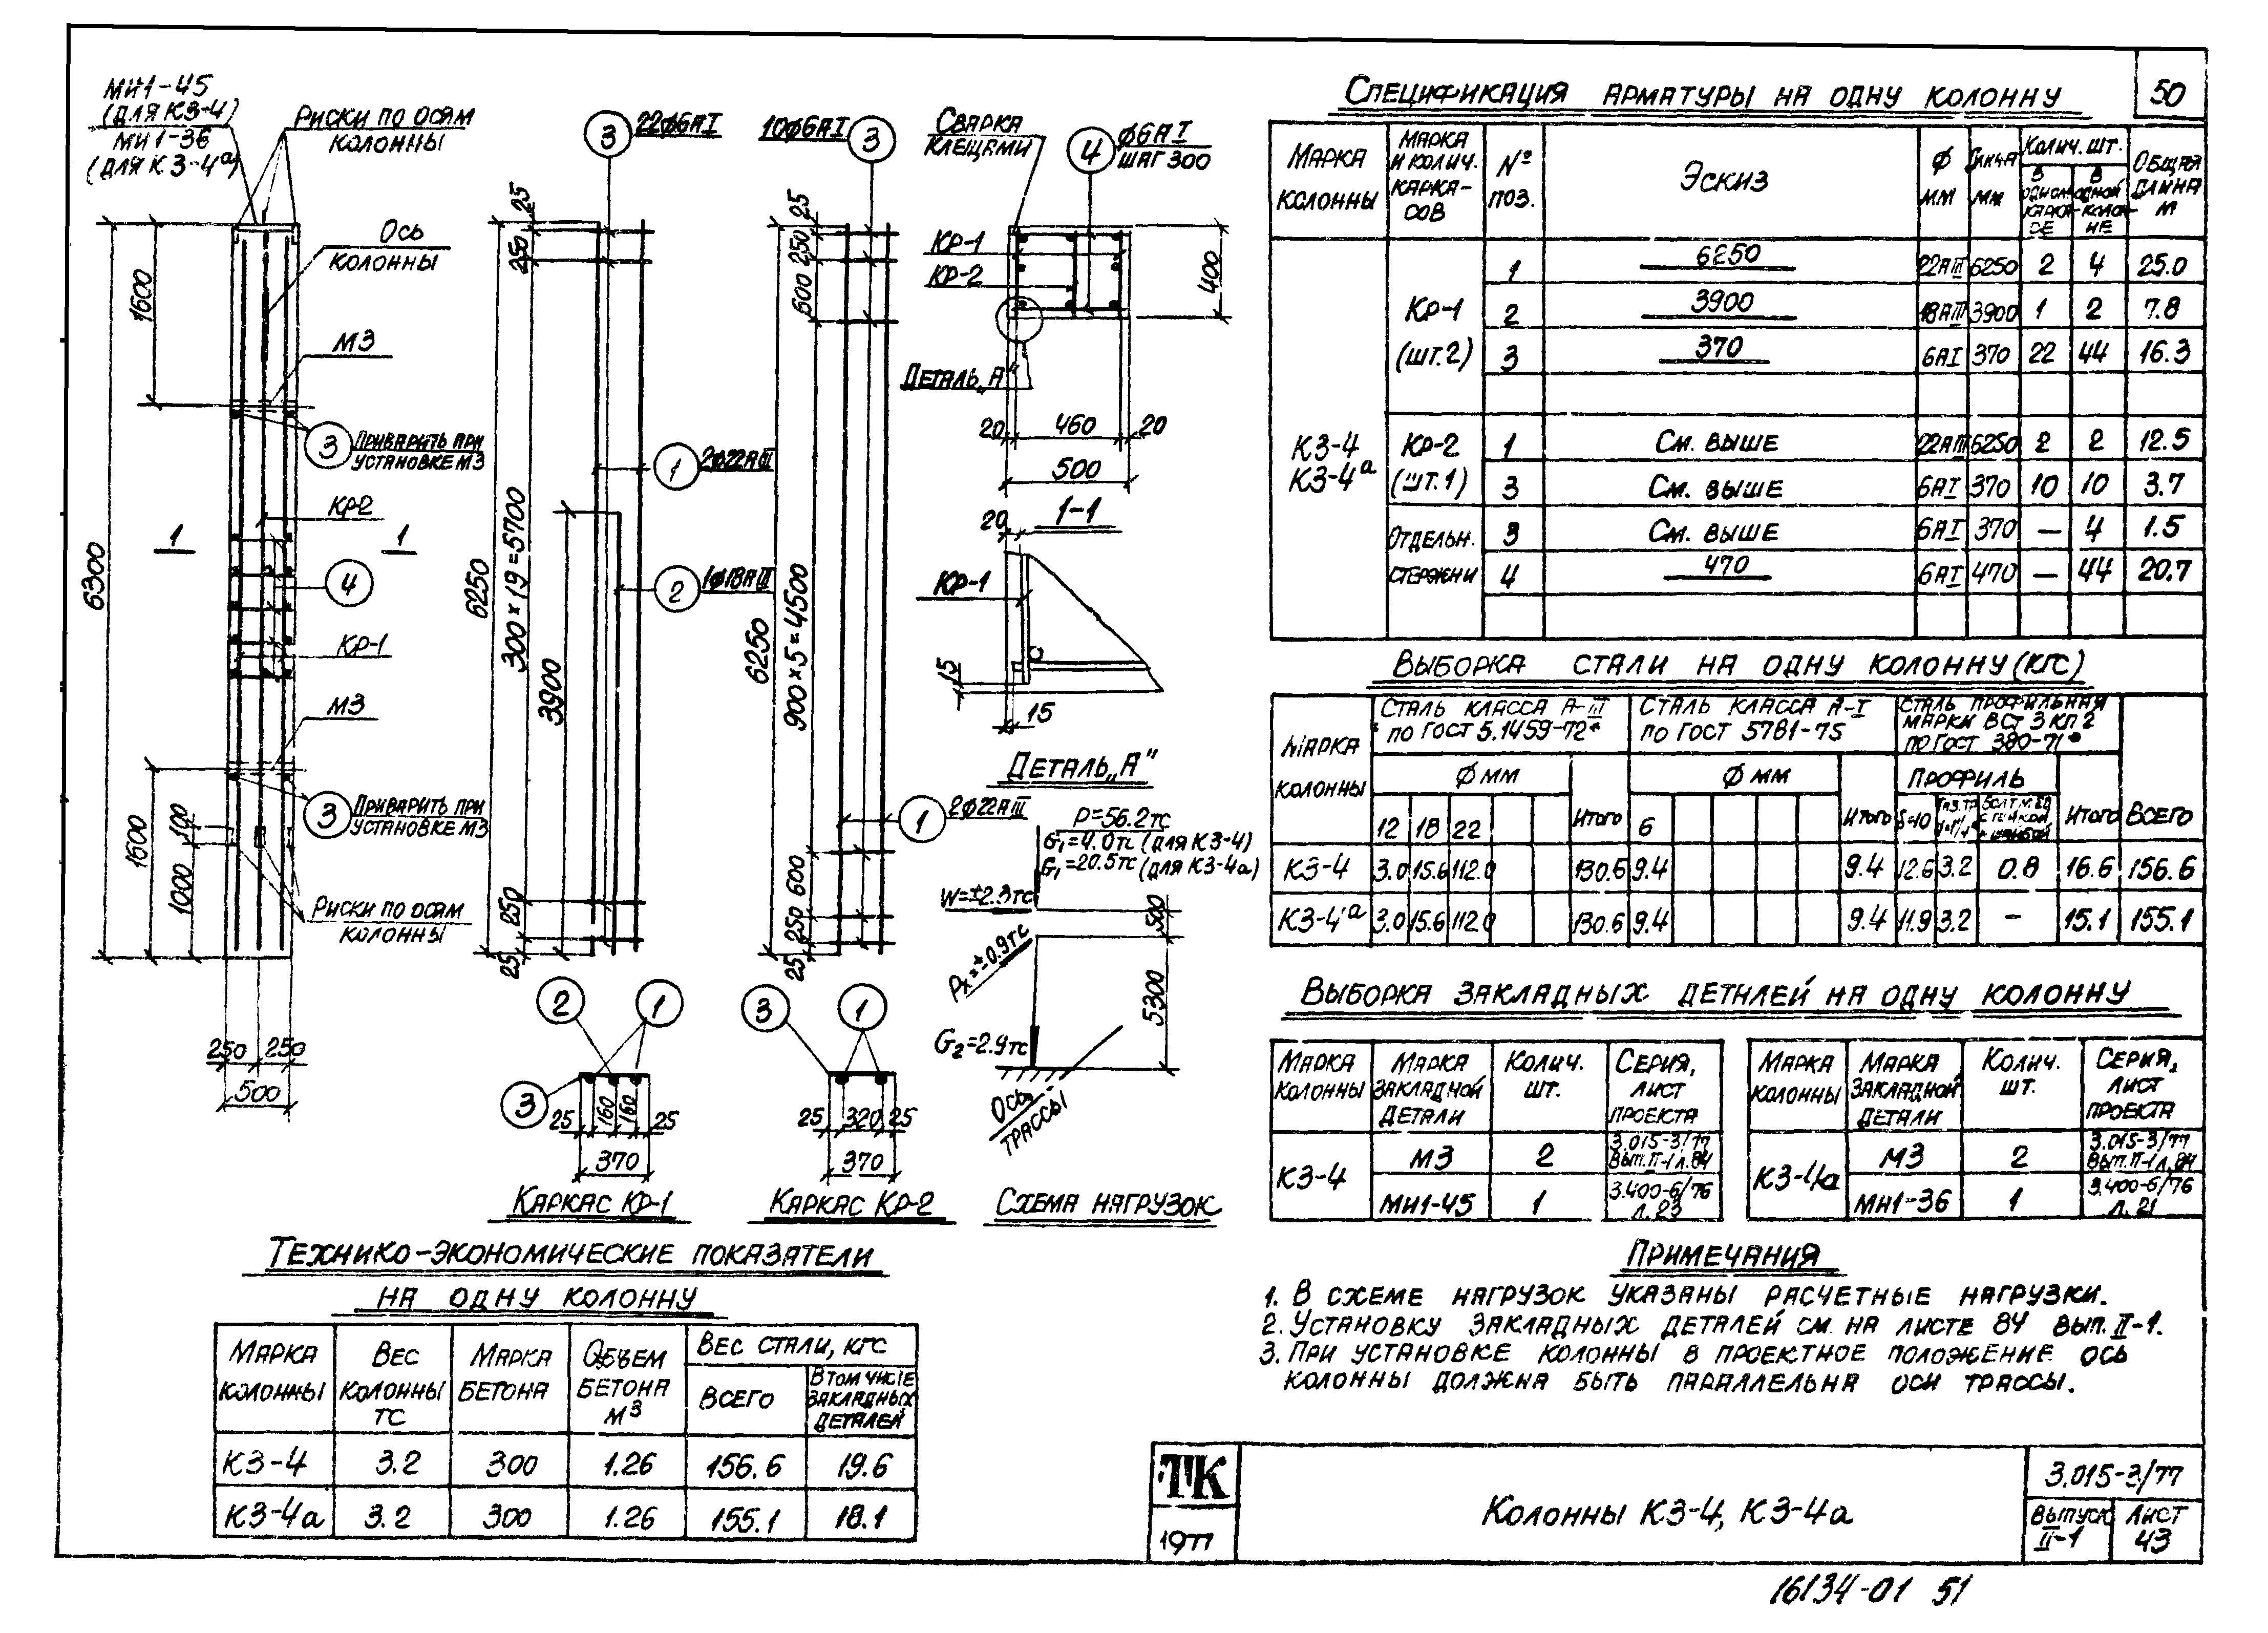 50
МН1-45
(для К3-4)
МН1-36
(для К3-4а)
Риски по осям
колонны
Ось
колонны
М3
3
Приварить при
установке М3
КР-2
1
1
4
КР-1
М3
3
Приварить при
установке М3
Риски по осям
колонны
6300
1600
1600
100
1000
250
250
500
3
22ф6АI
25
250
6250
300×19=5700
3900
1
2ф22АIII
2
1ф18АIII
250
25
2
1
3
25
160
160
25
370
Каркас КР-1
10ф6АI
3
25
250
600
6250
900×5=4500
1
2ф22АIII
600
250
25
3
1
25
320
25
370
Каркас КР-2
Сварка
клещами
4
ф6АI
шаг 300
КР-1
КР-2
400
Деталь „А"
20
460
20
500
1-1
20
КР-1
15
15
Деталь „А"
P=56.2тс
G1=4.0тс (для К3-4)
G1=20.5тс (для К3-4а)
W=±2.3тс
500
Рх=±0.9тс
5300
G2=2.9тс
Ось
трассы
Схема нагрузок
Спецификация арматуры на одну колонну
Марка колонны
Марка и колич. каркасов
№ поз.
Эскиз
ф мм
Длина мм
Колич. шт.
В одном каркасе
В одной колонне
Общая длина м
К3-4
К3-4а
КР-1
(шт.2)
1 6250 22АIII 6250 2 4 25.0
2 3900 18АIII 3900 1 2 7.8
3 370 6АI 370 22 44 16.3
КР-2
(шт.1)
1 См. выше 22АIII 6250 2 2 12.5
3 См. выше 6АI 370 10 10 3.7
Отдельн.
стержни
3 См. выше 6АI 370 — 4 1.5
4 470 6АI 470 — 44 20.7
Выборка стали на одну колонну (кгс)
Марка колонны
Сталь класса А-III
по ГОСТ 5.1459-72*
Сталь класса А-I
по ГОСТ 5781-75
Сталь профильная
марки ВСт 3 кп 2
по ГОСТ 380-71*
ф мм
ф мм
Профиль
12 18 22 Итого 6 Итого δ=10 Итого Всего
К3-4 3.0 15.6 112.0 130.6 9.4 9.4 12.6 3.2 0.8 16.6 156.6
К3-4а 3.0 15.6 112.0 130.6 9.4 9.4 11.9 3.2 - 15.1 155.1
Выборка закладных деталей на одну колонну
Марка колонны
Марка закладной детали
Колич. шт.
Серия, лист проекта
К3-4
М3 2 3.015-3/77 Вып. II-1 л. 84
МН1-45 1 3.400-6/76 л. 23
Марка колонны
Марка закладной детали
Колич. шт.
Серия, лист проекта
К3-4а
М3 2 3.015-3/77 Вып. II-1 л. 84
МН1-36 1 3.400-6/76 л. 21
Технико-экономические показатели
на одну колонну
Марка колонны
Вес колонны тс
Марка бетона
Объем бетона м3
Вес стали, кгс
Всего
В том числе закладных деталей
К3-4 3.2 300 1.26 156.6 19.6
К3-4а 3.2 300 1.26 155.1 18.1
Примечания
1. В схеме нагрузок указаны расчетные нагрузки.
2. Установку закладных деталей см. на листе 84 вып. II-1.
3. При установке колонны в проектное положение ось
колонны должна быть параллельна оси трассы.
ТК
1977
Колонны К3-4, К3-4а
3.015-3/77
Выпуск
II-1
Лист
43
16134-01 51